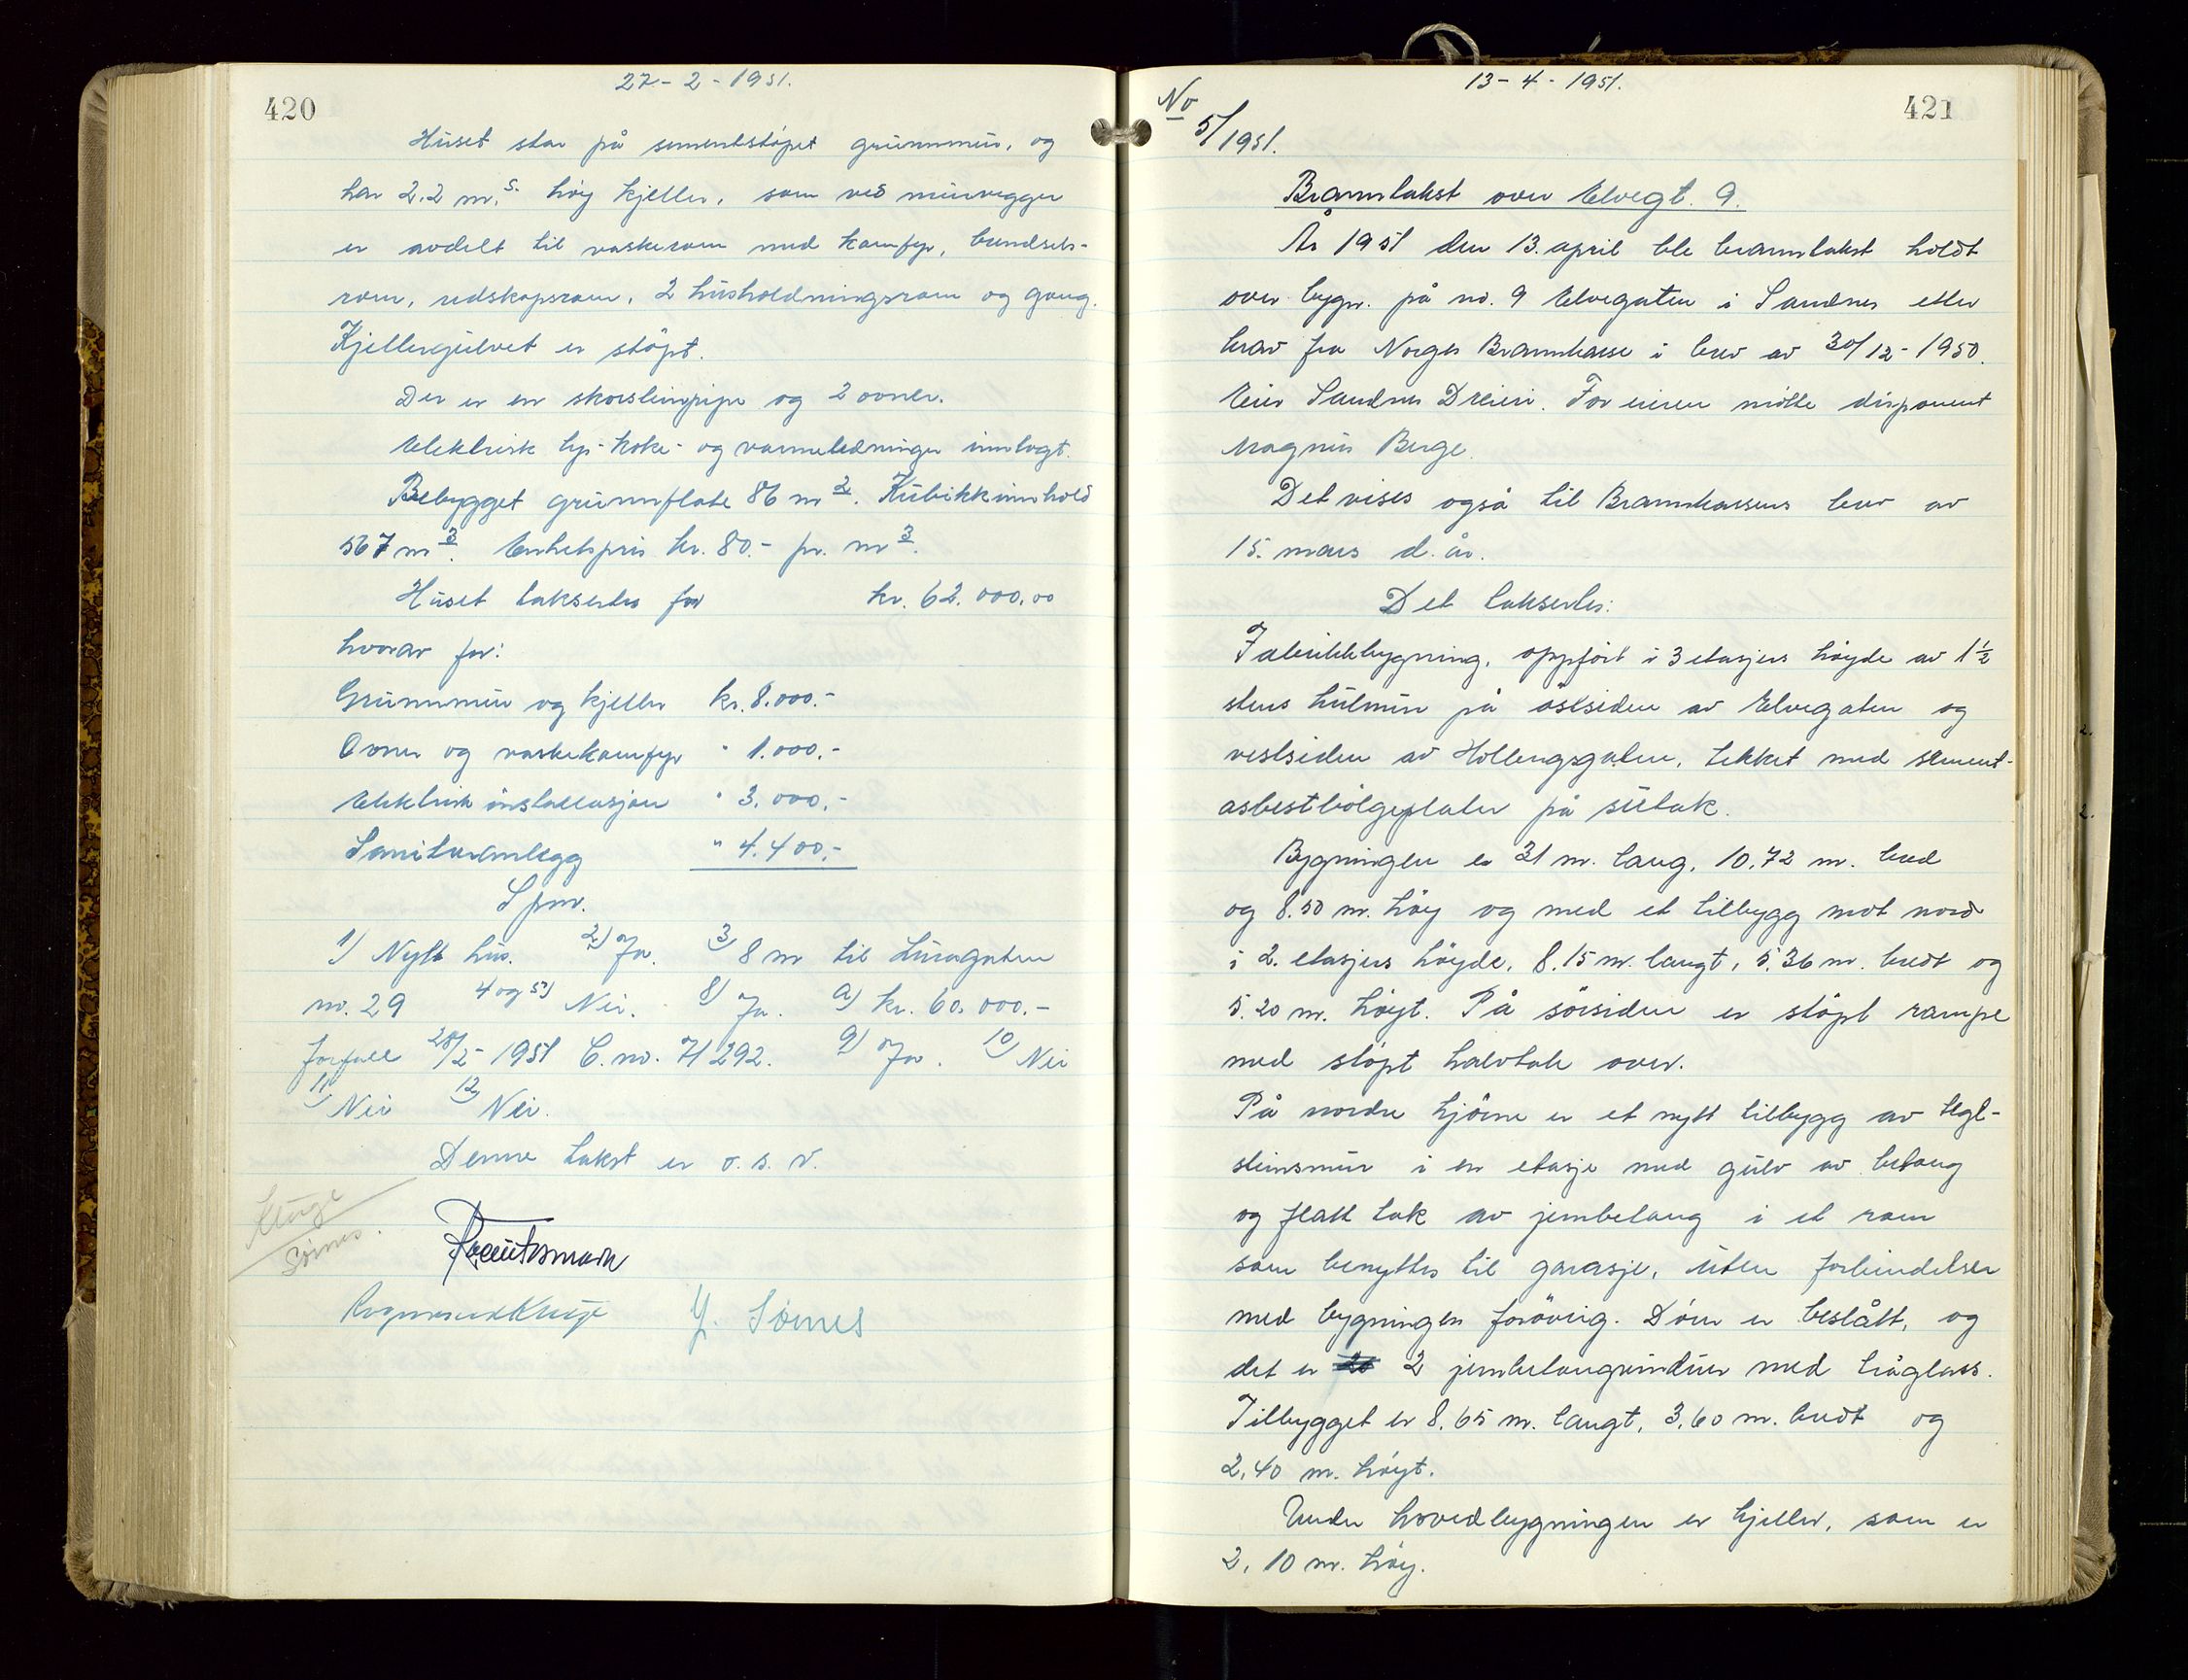 420
27-2-1951.
Huset står på sementstöpt grunnmur, og
har 2.2 m.s. höy kjeller, som ved murvegger
er avdelt til vaskerom med komfyr, brendsels-
rom, redskapsrom, 2 husholdningsrom og gang.
Kjellergulvet er stöpt.
Der er en skorsteinspipe og 2 ovner.
Elektrisk lys- koke- og varmeledninger innlagt.
Bebygget grunnflate 86 m2. Kubikkinnhold
567 m3. Enhetspris kr. 80.- pr. m3.
Huset takseres for kr. 62.000,00
hvorav for:
Grunnmur og kjeller kr. 8.000.-
Ovner og vaskekomfyr " 1.000.-
Elektrisk installasjon " 3.000.-
Sanitæranlegg " 4.400.-
Spm.
1) Nytt hus. 2) Ja. 3) 8 m til Luragaten
no. 29 4 og 5) Nei. 8) Ja. a) kr. 60.000.-
forfall 28/2-1951 C. no. 71292. 9) Ja. 10) Nei
11) Nei 12) Nei.
Denne takst er o.s.v.
Kluge
Sömes.
Rognvald Kluge Y. Sömes
No
5/1951.
13-4-1951.
421
Branntakst over Elvegt. 9.
År 1951 den 13. april ble branntakst holdt
over bygn. på no. 9 Elvegaten i Sandnes etter
krav fra Norges Brannkasse i brev av 30/12-1950.
Eier Sandnes Dreieri. For eieren mötte disponent
Magnus Berge.
Det vises også til Brannkassens brev av
15. mars d. år.
Det takseres:
Fabrikkbygning, oppfört i 3 etasjers höyde av 1½
stens hulmur på östsiden av Elvegaten og
vestsiden av Hollengsgaten, tekket med sement-
asbestbölgeplater på sutak.
Bygningen er 31 m. lang, 10,72 m. bred
og 8.50 m. höy og med et tilbygg mot nord
i 2. etasjers höyde, 8.15 m. langt, 5.36 m. bredt og
5.20 m. höyt. På sörsiden er stöpt rampe
med stöpt halvtak over.
På nordre hjörne er et nytt tilbygg av tegl-
steinsmur i en etasje med gulv av betong
og flatt tak av jernbetong i et rom
som benyttes til garasje, uten forbindelser
med bygningen forövrig. Dören er beslått, og
det er 2 jernbetongvinduer med tråglass.
Tilbygget er 8.65 m. langt, 3,60 m. bredt og
2,40 m. höyt.
Under hovedbygningen er kjeller, som er
2,10 m. höy.